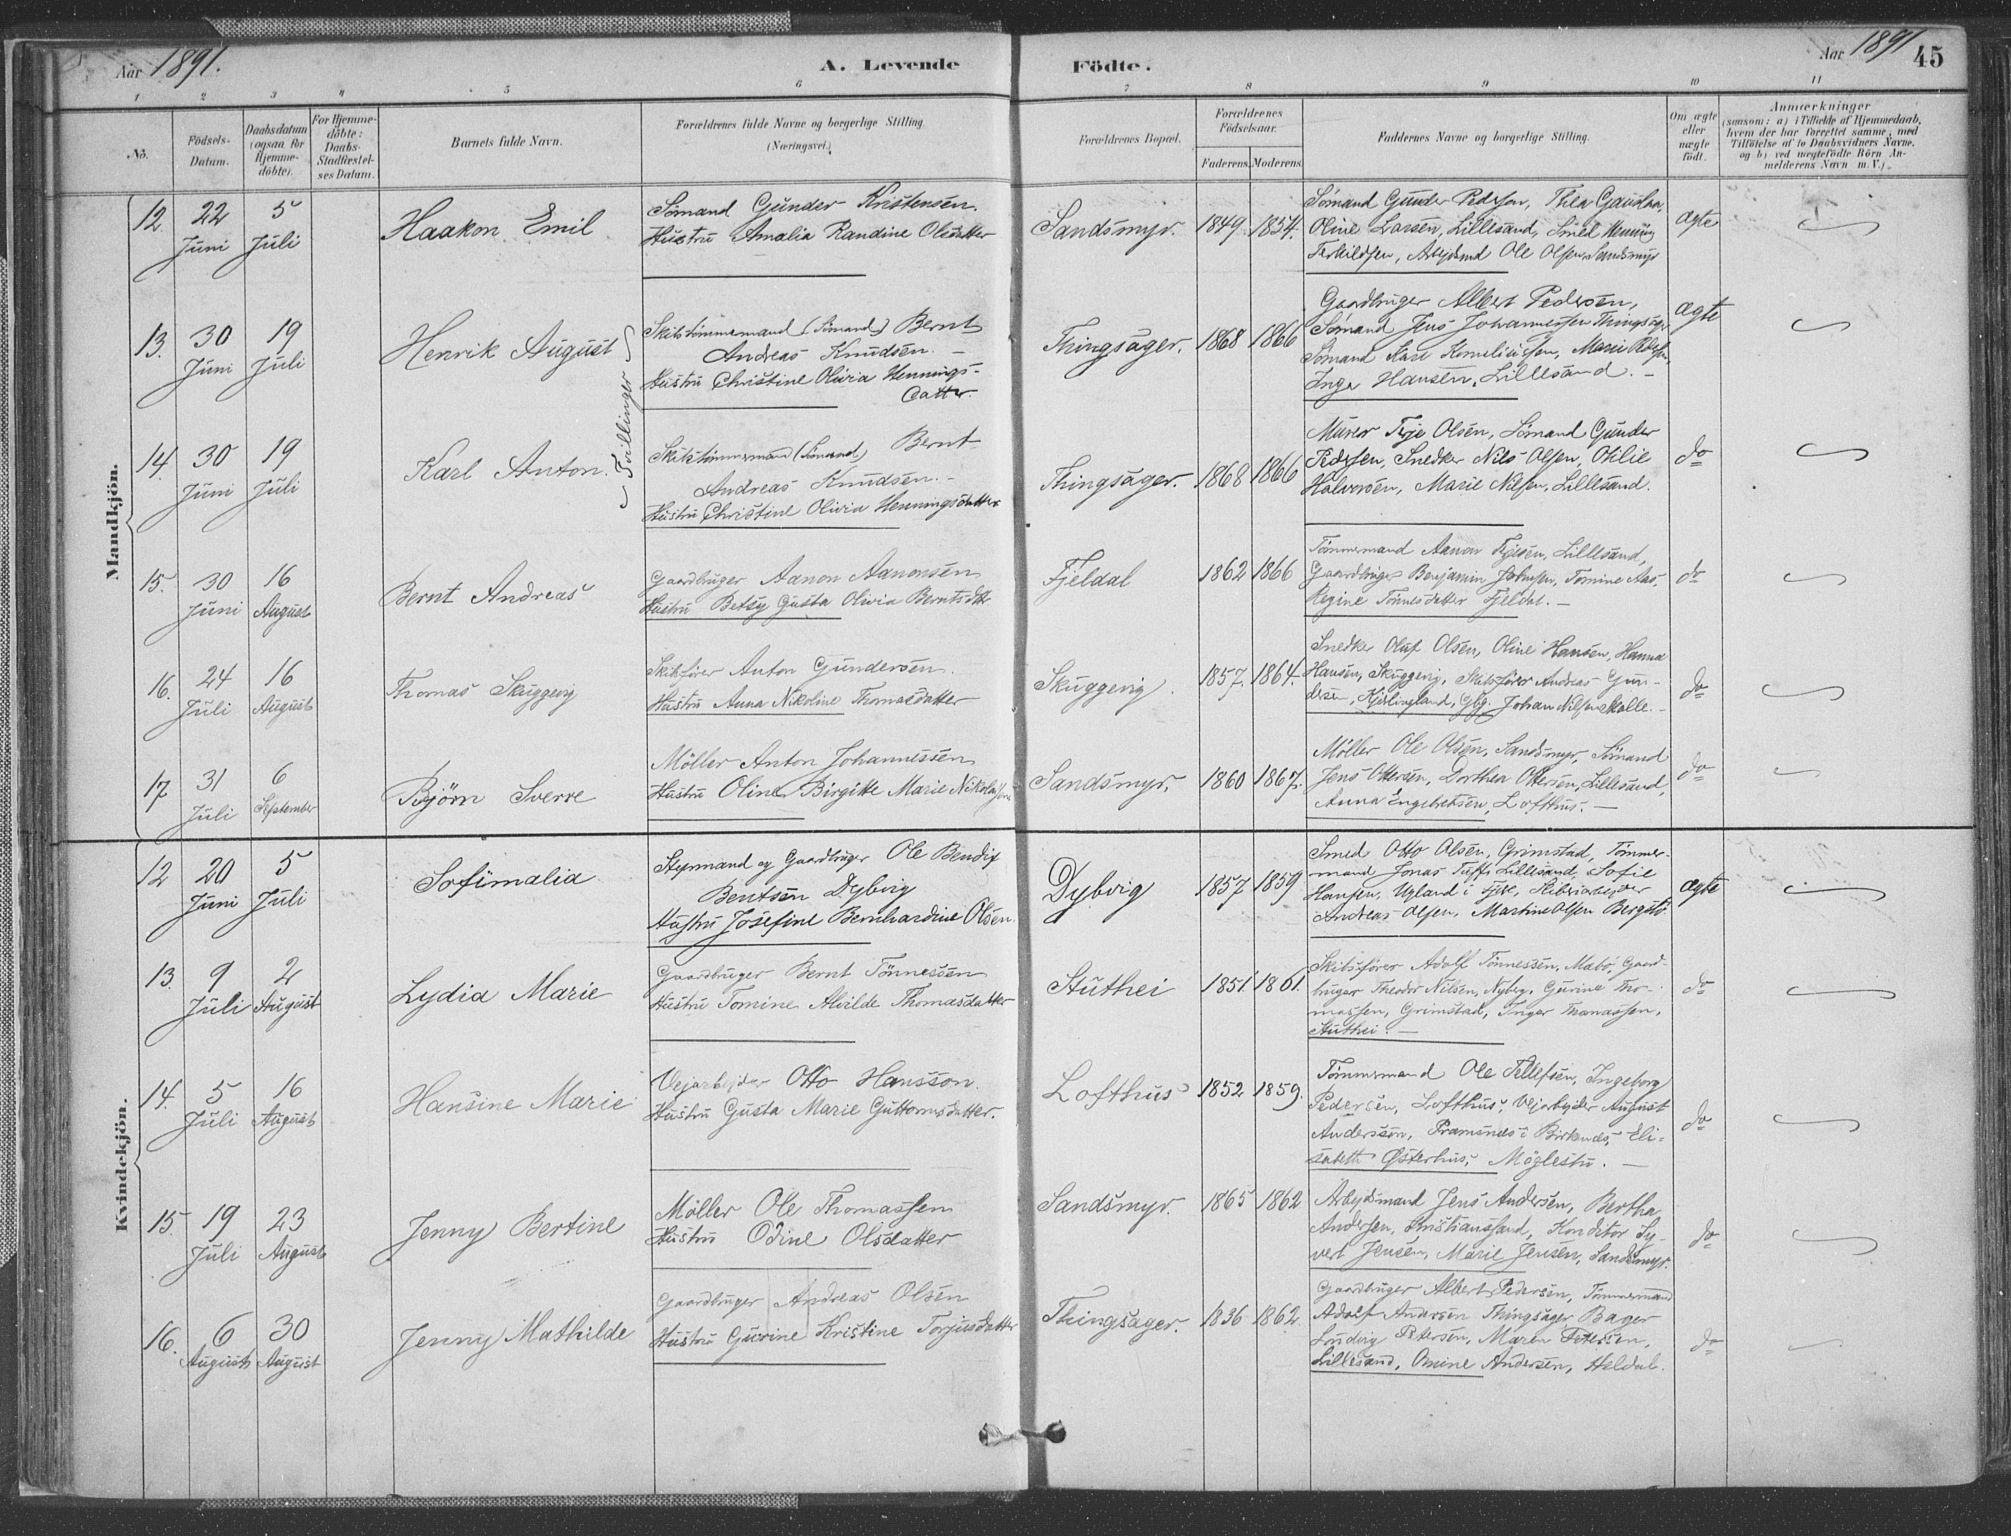 Aar 1891. A. Levende Födte. Aar 1891 45
1 2 3 4 5 6 7 8 9 10 11
No.
Födsels-
Datum.
Daabsdatum
(ogsaa for
Hjemme-
döbte).
For Hjemme-
döbte:
Daabs-
Stadfæstel-
ses Datum.
Barnets fulde Navn.
Forældrenes fulde Navne og borgerlige Stilling
(Næringsvei.)
Forældrenes Bopæl.
Forældrenes
Födselsaar.
Faderens. Moderens.
Faddernes Navne og borgerlige Stilling.
Om ægte
eller
uægte
födt.
Anmærkninger
(saasom: a) i Tilfælde af Hjemmedaab,
hvem der har forrettet samme, med
Tilföielse af to Daabsvidners Navne,
og b) ved uægtefödte Börn An-
melderens Navn m. V.)
Mandkjön.
12 22 Juni
5 Juli
Haakon Emil
Sömand Gunder Kristensen.
Hustru Amalia Randine Olsdatter
Sandsmyr. 1849 1854.
Sömand Gunder Pedersen, Thea Gauslaa,
Oline Larsen, Lillesand, Smed Henning
Terkildsen, Arbejdsmd Ole Olsen Sandsmyr
ægte
13. 30 Juni
19 Juli
Henrik August
Tvillinger
Skibstömmermand (Sömand) Bernt
Andreas Knudsen. –
Hustru Christine Olivia Hennings-
datter.
Thingsager. 1868 1866
Gaardbruger Albert Pedersen,
Sömand Jens Johannessen Thingsager
Sömand Karl Korneliussen, Marie Pedersen,
Inga Hansen, Lillesand. –
ægte
14. 30 Juni
19 Juli
Karl Anton.
Skibstömmermand (Sömand) Bernt
Andreas Knudsen. –
Hustru Christine Olivia Henningsdatter
Thingsager. 1868 1866
Murer Terje Olsen, Sömand Gunder
Pedersen, Snedker Nils Olsen, Otilie
Halvorsen, Marie Nilsen, Lillesand.
do
15. 30 Juni
16 August
Bernt Andreas
Gaardbruger Aanon Aanonsen
Hustru Betsy Gusta Olivia Berntsdtr
Fjeldal 1862 1866
Tömmermand Aanon Terjesen, Lillesand,
Gaardbruger Benjamin Johnsen, Tomine Aas,
Regine Tönnesdatter Fjeldal. –
do
16. 24 Juli
16 August
Thomas Skuggevig
Skibsförer Anton Gundersen
Hustru Anna Nikoline Thomasdatter
Skuggevig. 1857. 1864.
Snedker Oluf Olsen, Oline Hansen, Hanna
Hansen, Skuggevig, Skibsförer Andreas Gun-
dersen, Kjitlingland, Gbg. Johan Nilsen Skalle. –
do
17 31 Juli
6 September
Bjørn Sverre
Möller Anton Johannessen
Hustru Oline Birgitte Marie Nikolajsen
Sandsmyr. 1860 1867.
Möller Ole Olsen, Sandsmyr, Sömand
Jens Ottersen, Dorthea Ottersen, Lillesand,
Anna Engebretsen, Lofthus. –
do
Kvindekjön.
12 20 Juni
5 Juli
Sofimalia
Styrmand og Gaardbruger Ole Bendix
Bentsen Dybvig
Hustru Josefine Bernhardine Olsen.
Dybvig 1857 1859
Smed Otto Olsen, Grimstad, Tömmer-
mand Jonas Lillesand, Sofie
Hansen, Ugland i
Andreas Olsen, Martine Olsen Bergstö
ægte
13. 9 Juli
2 August
Lydia Marie
Gaardbruger Bernt Tönnessen
Hustru Tomine Alvilde Thomasdatter
Stuthei 1851. 1861.
Skibsförer Adolf Tönnessen, Mabö, Gaard-
bruger Theodor Nilsen, Nyberg, Gurine Tho-
massen, Grimstad, Inger Thomassen,
Stuthei. –
do
14. 5 Juli
16 August
Hansine Marie
Vejarbejder Otto Hansson.
Hustru Gusta Marie Guttormsdatter.
Lofthus 1852 1859.
Tömmermand Ole Tellefsen, Ingeborg
Pedersen, Lofthus, Vejarbejder August
Anderssön, Framnes i Birkenes, Eli-
sabeth Østerhus, Möglestu. –
do
15. 19 Juli
23 August
Jenny Bertine
Möller Ole Thomassen
Hustru Odine Olsdatter
Sandsmyr. 1865 1862
Arbejdsmand Jens Andersen, Bertha
Andersen, Kristianssand, Konditor Sy-
vert Jensen, Marie Jensen, Sandsmyr.
do
16. 6 August
30 August
Jenny Mathilde
Gaardbruger Andreas Olsen
Hustru Gurine Kristine Torjusdatter
Thingsager. 1836 1862.
Gaardbruger Albert Pedersen, Tömmermand
Adolf Andersen Thingsager Bager
Loudvig Petersen, Maren Petersen,
Lillesand, Omine Andersen, Heldal.
do